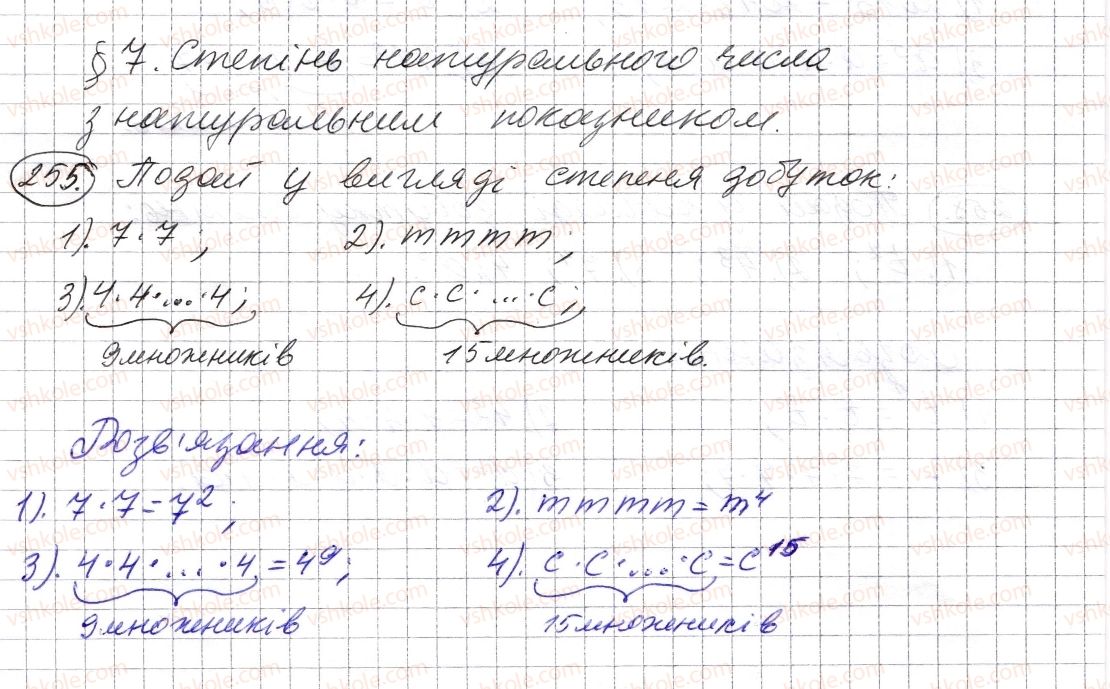 § 7. Степінь натурального числа
з натуральним показником.
255. Подай у вигляді степеня добуток:
1). 7·7; 2). mmmm;
3). 4·4·...·4; 4). c·c·...·c;
9 множників 15 множників.
Розв'язання:
1). 7·7=7²; 2). mmmm=m⁴
3). 4·4·...·4=4⁹; 4). c·c·...·c=c¹⁵
9 множників 15 множників